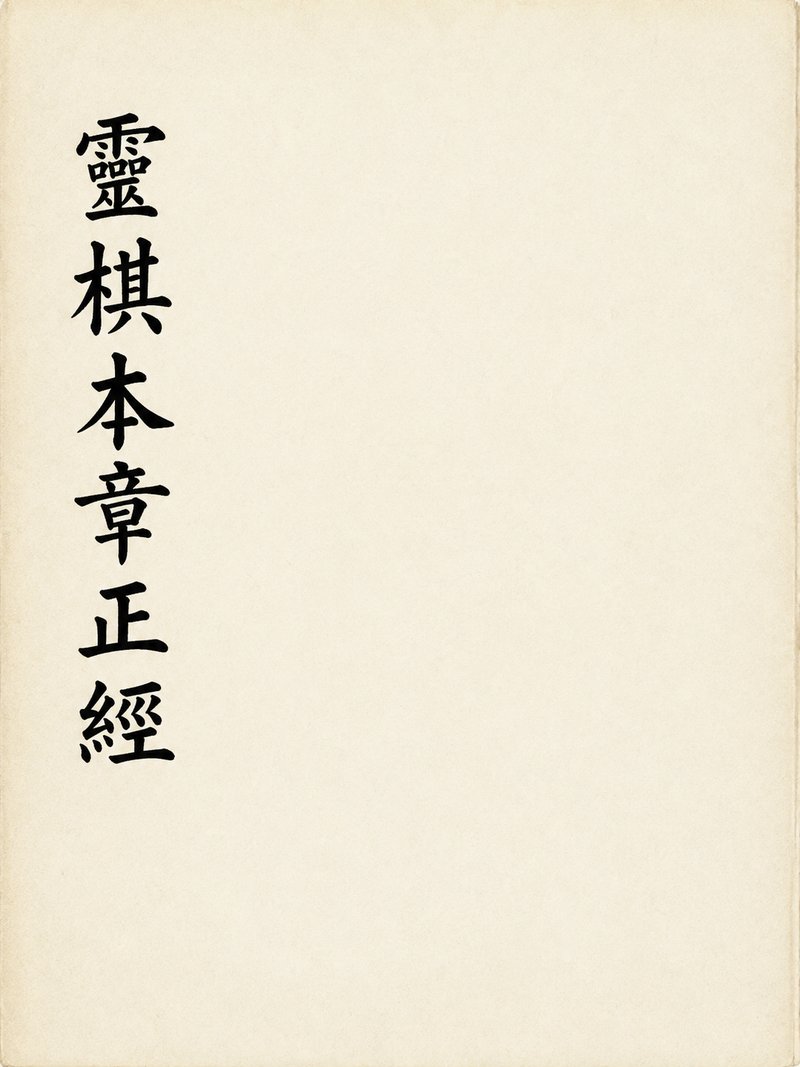 靈棋本章正經